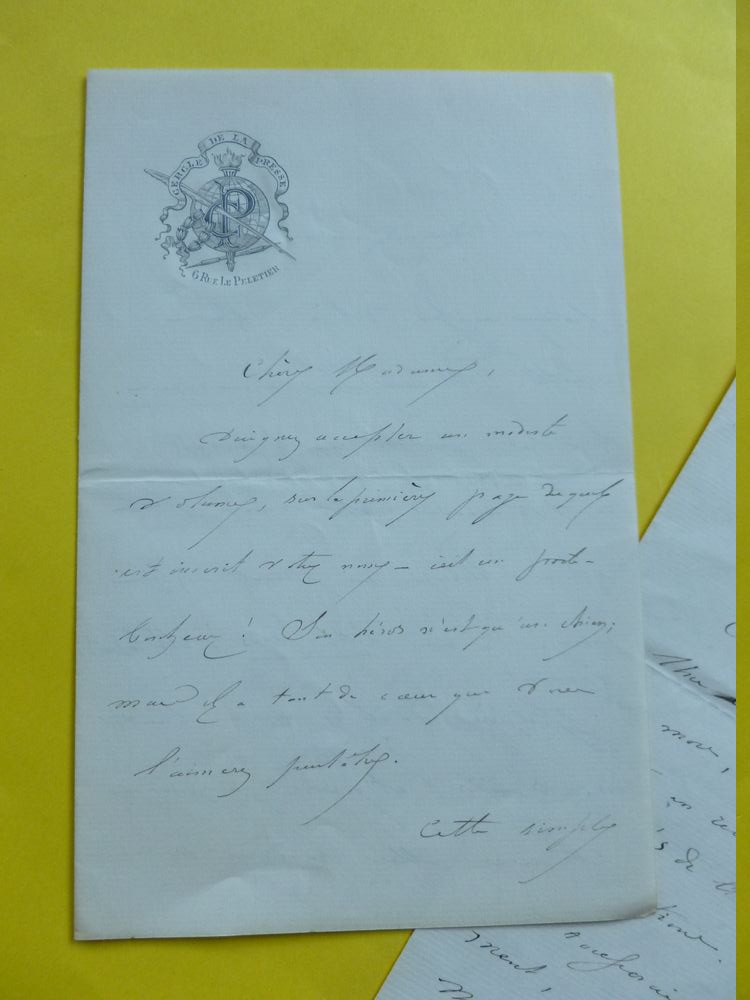 CERCLE DE LA PRESSE
6 RUE LE PELETIER
Chère Madame,
Daignez accepter un modeste
volume, sur la première page duquel
est inscrit votre nom – c'est un porte-
bonheur ! Son héros n'est qu'un chien;
mais il a tant de cœur que vous
l'aimerez peut-être.
Cette simple
mort,
de